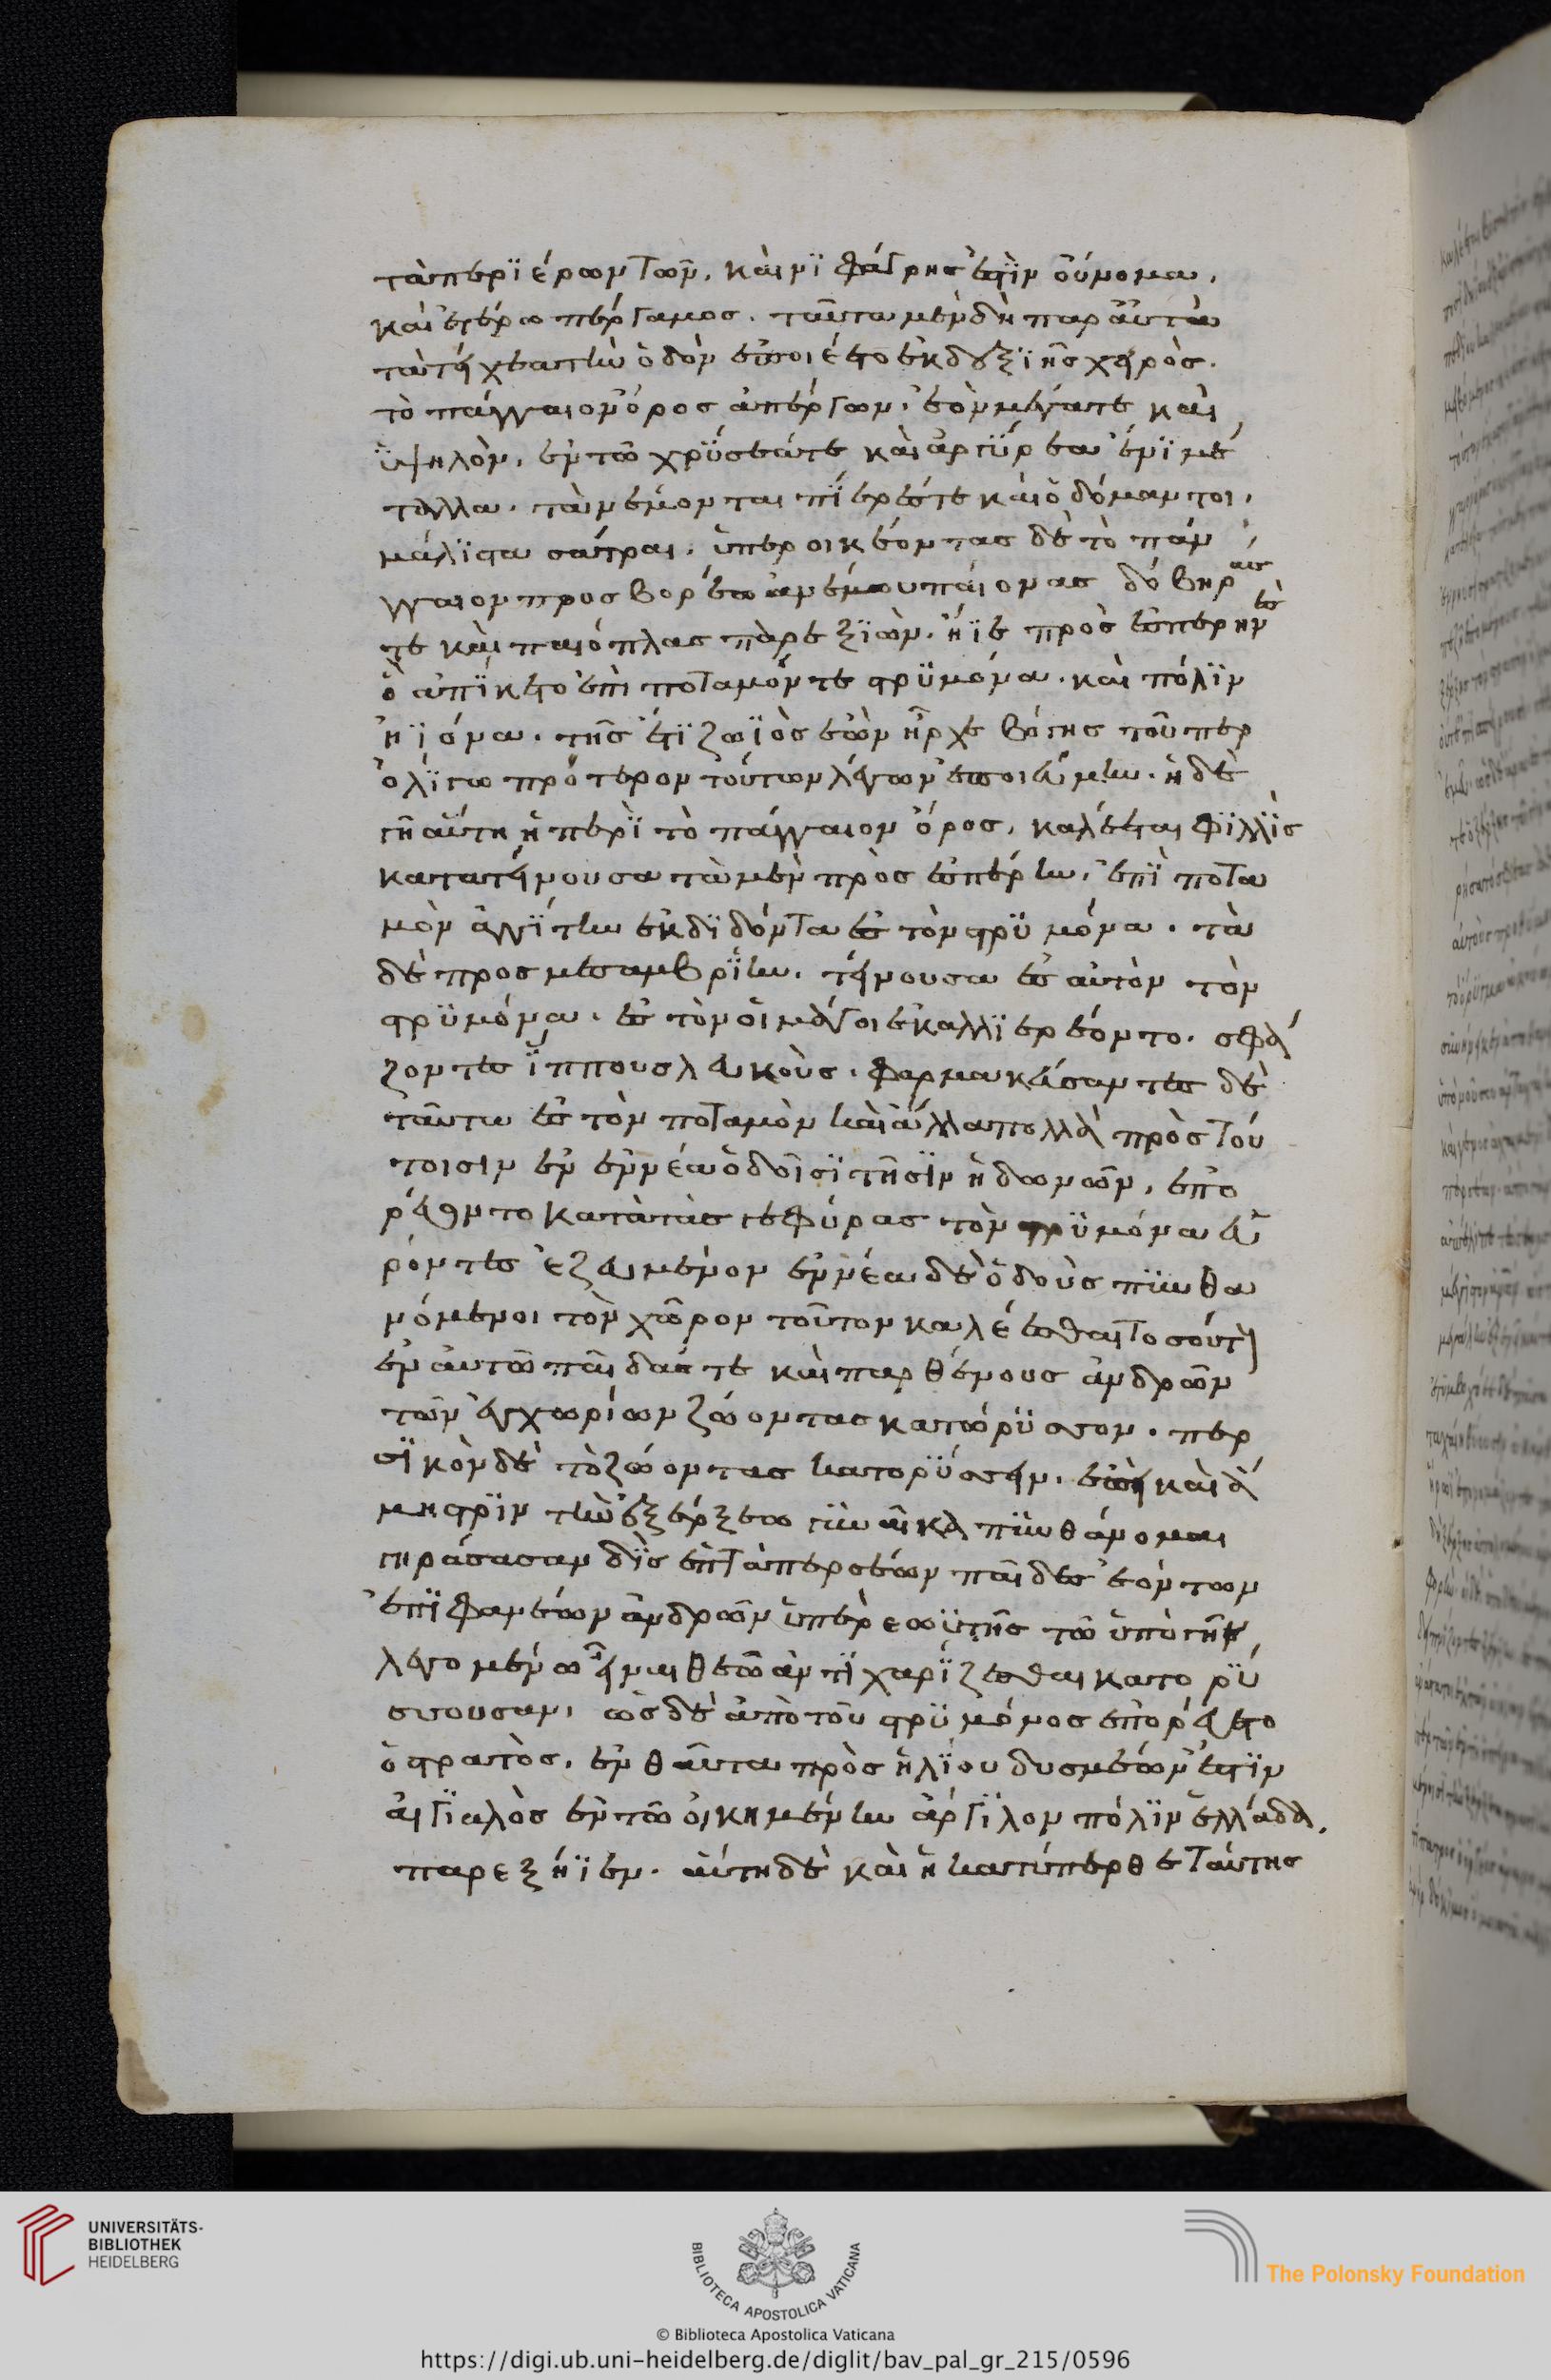 τὰ περὶ ἑρων τῶν, καὶ νὶ φάγρης ἐστὶν οὔνομα,
καὶ ἑτέρω πέργαμος. ταῦτα μὲν δὴ παρ αὐτὰ
τὰ τείχεα τὴν ὁδὸν ἐποιέετο ἐκ δεξιῆς χειρὸς.
τὸ πάγγαιον ὄρος ἀπέργων, ἐὸν μέγα τε καὶ
ὑψηλὸν, ἐν τῶ χρύσεά τε καὶ ἀργύρεα ἔνι μέ
ταλλα. τὰ νέμονται πίερές τε καὶ ὀδόμαντοι,
μάλιστα σάτραι. ὑπεροικέοντας δὲ τὸ πάγ
γαιον προς βορέω ἀνέμου παίονας δόβηρας
τε καὶ παιόπλας παρεξιὼν. ἤιε πρὸς ἑσπέρην ἐς
ὃ ἀπίκετο ἐπὶ ποταμόν τε στρυμόνα. καὶ πόλιν
ἠιόνα. τῆς ἔτι ζωιὸς ἐὼν ἦρχε βόγης τοῦ περ
ὀλίγω πρότερον τούτων λόγον ἐποιεύμην. ἡ δὲ
γῆ αὕτη ἡ περὶ τὸ πάγγαιον ὄρος, καλέεται φιλλὶς
κατατείνουσα τὰ μὲν πρὸς ἑσπέρην, ἐπὶ ποτα
μὸν ἀγγίτην ἐκδιδόντα ἐς τὸν στρυμόνα. τὰ
δὲ προς μεσαμβρίην, τείνουσα ἐς αὐτὸν τὸν
στρυμόνα. ἐς τὸν οἱ μάγοι ἐκαλλιερέοντο. σφά
ζοντες ἵππους λευκοὺς. φαρμακεύσαντες δὲ
ταῦτα ἐς τὸν ποταμὸν καὶ ἄλλα πολλὰ πρὸς τού
τοισιν ἐν ἐννέα ὁδοῖσι τῆσιν ἠδωνῶν, ἐπο
ρεύοντο κατὰ τὰς γεφύρας τὸν στρυμόνα εὑ
ρόντες ἐζευγμένον ἐννέα δὲ ὁδοὺς πυνθα
νόμενοι τὸν χῶρον τοῦτον καλέεσθαι τοσούτους
ἐν αὐτῶ παῖδάς τε καὶ παρθένους ἀνδρῶν
τῶν ἐπιχωρίων ζώοντας κατώρυσσον. περ
σικὸν δὲ τὸ ζώοντας κατορύσσειν, ἐπεὶ καὶ ἄ
μηστριν τὴν ξέρξεω γυναῖκα πυνθάνομαι
γηράσασαν δὶς ἑπτὰ περσέων παῖδας ἐόντων
ἐπιφανέων ἀνδρῶν ὑπὲρ εωυτῆς τῶ ὑπὸ γῆν
λεγομένω εἶναι θεῶ ἀντιχαρίζεσθαι κατορύ
σσουσαν, ὡς δὲ ἀπὸ τοῦ στρυμόνος ἐπορεύετο
ὁ στρατὸς, ἐνθαῦτα πρὸς ἡλίου δυσμέων ἐστὶν
αἰγιαλὸς ἐν τῶ οἰκημένην ἄργιλον πόλιν ἑλλάδα,
παρεξήιεν. αὕτη δὲ καὶ ἡ κατύπερθε ταύτης
UNIVERSITÄTS-
BIBLIOTHEK
HEIDELBERG
BIBLIOTECA APOSTOLICA VATICANA
© Biblioteca Apostolica Vaticana
The Polonsky Foundation
https://digi.ub.uni-heidelberg.de/diglit/bav_pal_gr_215/0596